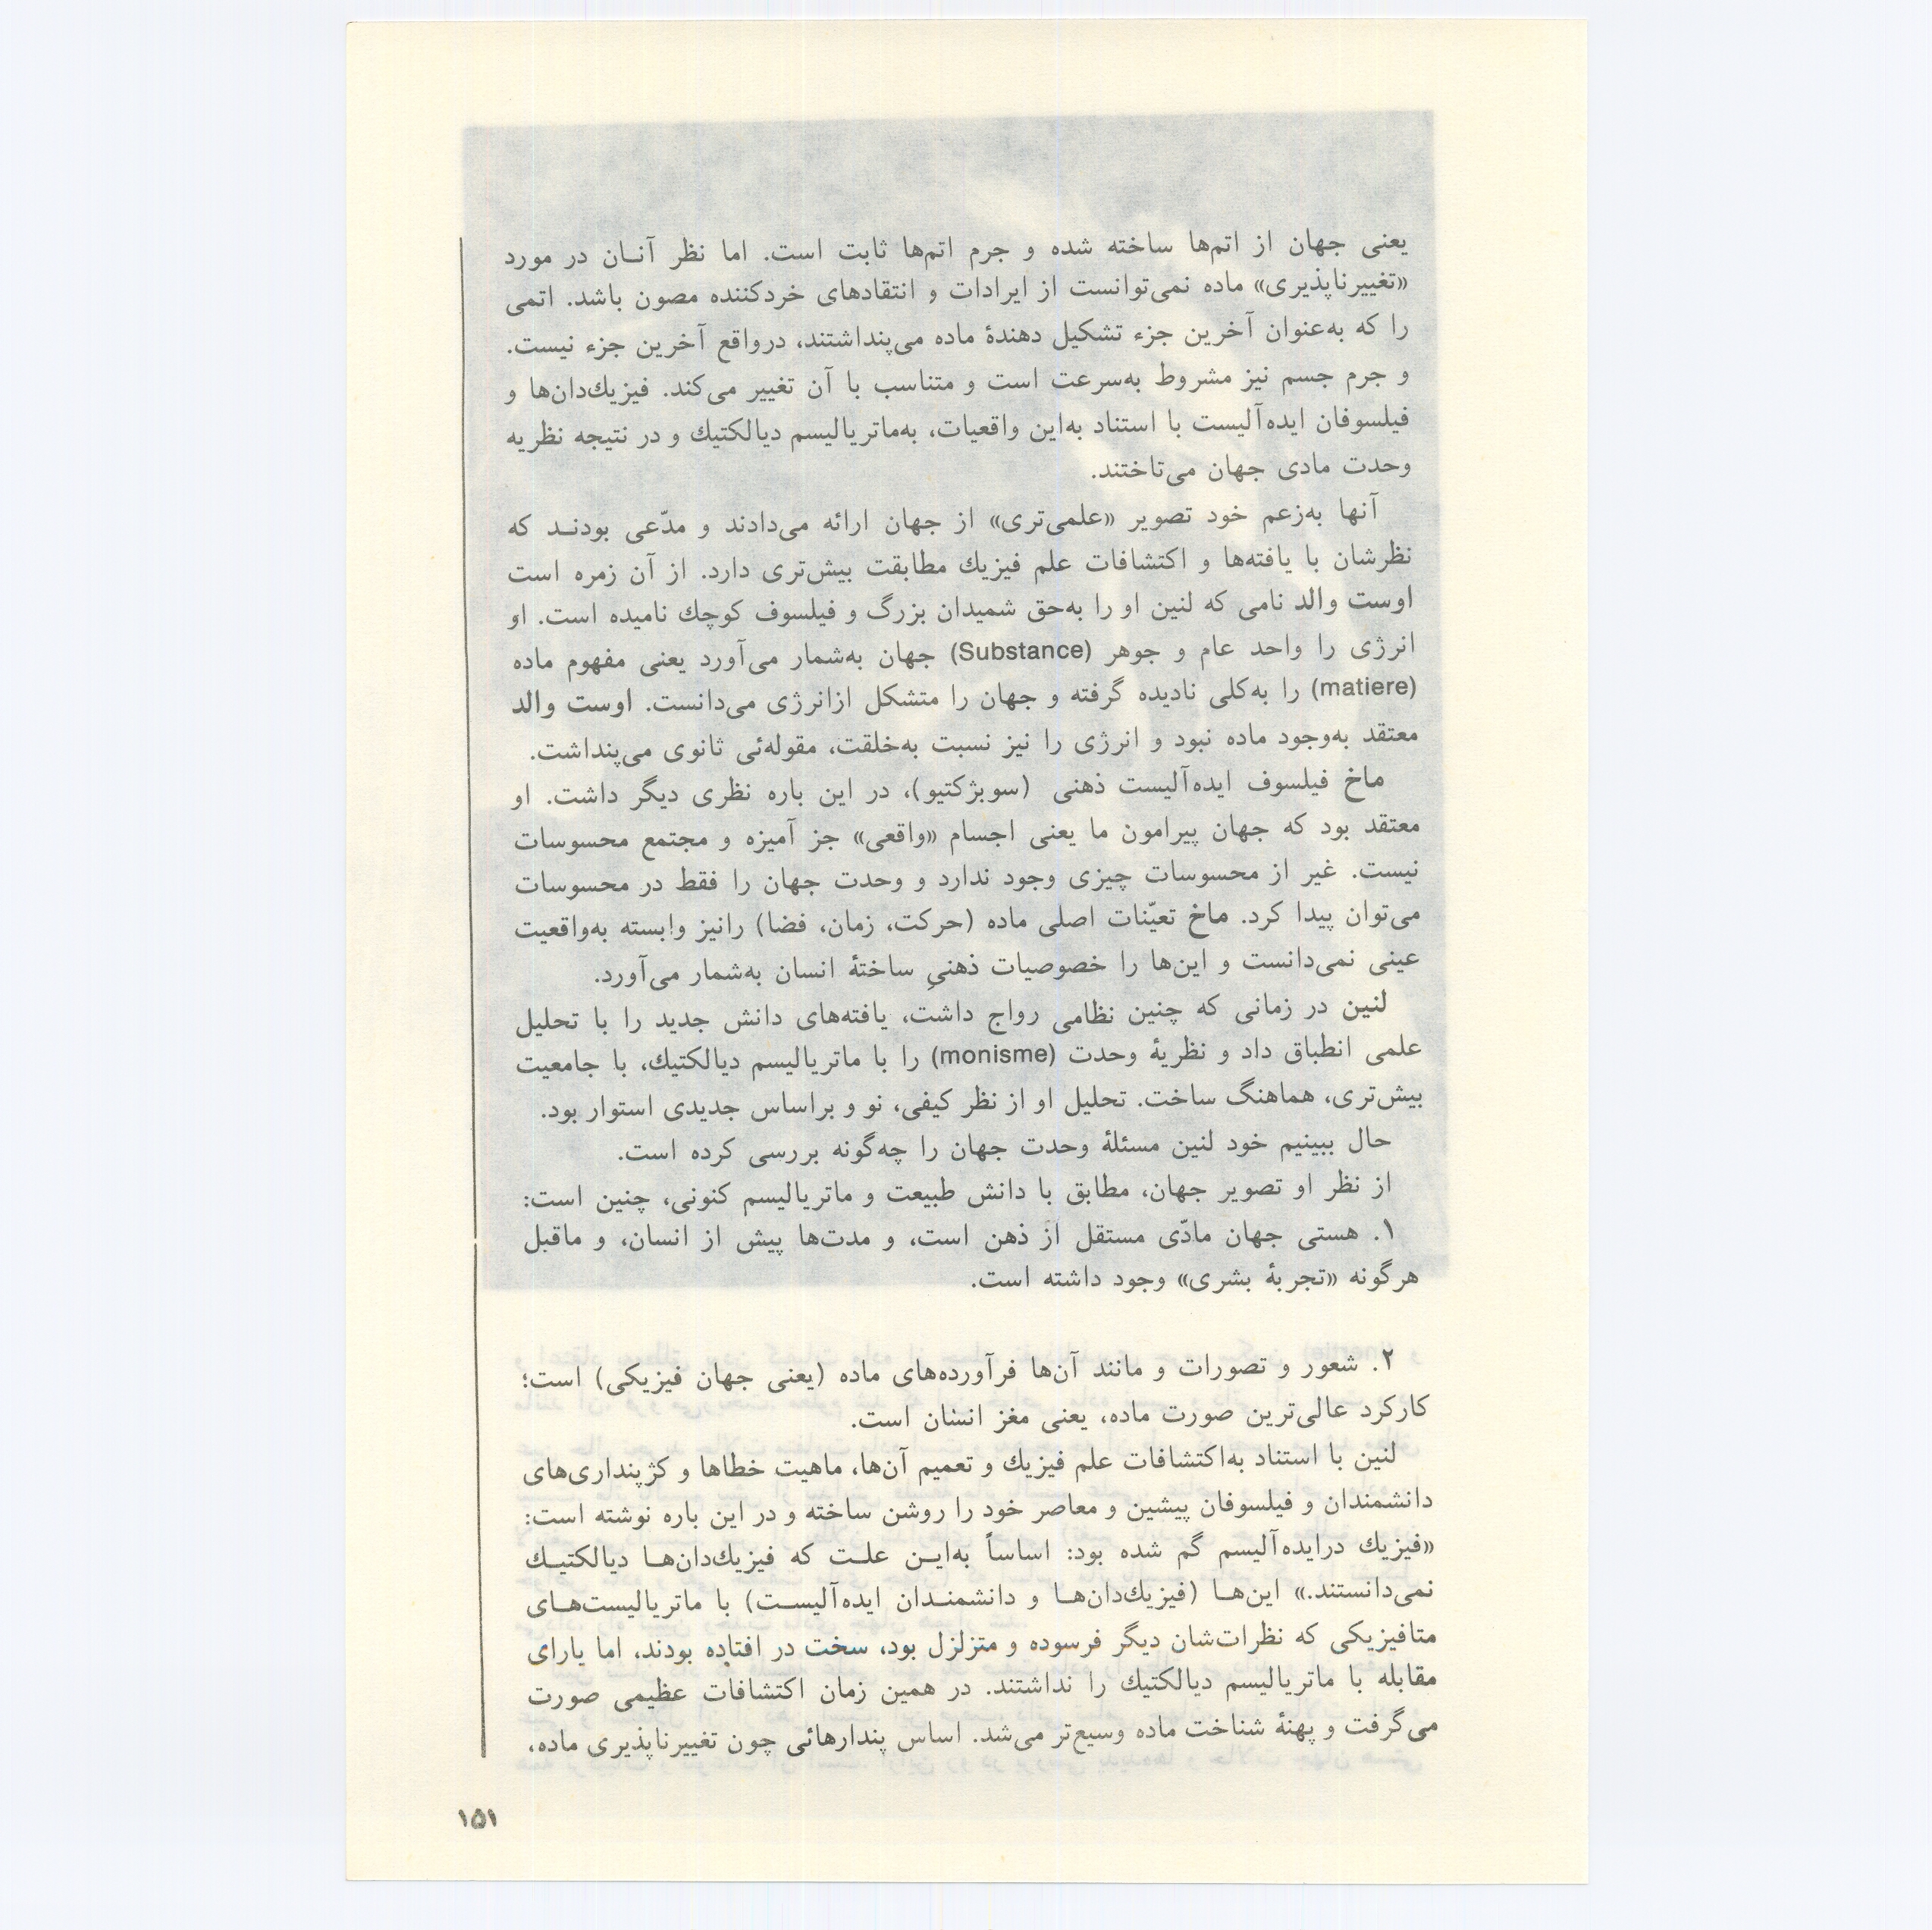 یعنی جهان از اتم‌ها ساخته شده و جرم اتم‌ها ثابت است. اما نظر آنـان در مورد
«تغییرناپذیری» ماده نمی‌توانست از ایرادات و انتقادهای خردکننده مصون باشد. اتمی
را که به‌عنوان آخرین جزء تشکیل دهندهٔ ماده می‌پنداشتند، درواقع آخرین جزء نیست.
و جرم جسم نیز مشروط به‌سرعت است و متناسب با آن تغییر می‌کند. فیزیك‌دان‌ها و
فیلسوفان ایده‌آلیست با استناد به‌این واقعیات، به‌ماتریالیسم دیالکتیك و در نتیجه نظریه
وحدت مادی جهان می‌تاختند.
آنها به‌زعم خود تصویر «علمی‌تری» از جهان ارائه می‌دادند و مدّعی بودنـد که
نظرشان با یافته‌ها و اکتشافات علم فیزیك مطابقت بیش‌تری دارد. از آن زمره است
اوست والد نامی که لنین او را به‌حق شمیدان بزرگ و فیلسوف کوچك نامیده است. او
انرژی را واحد عام و جوهر (Substance) جهان به‌شمار می‌آورد یعنی مفهوم ماده
(matiere) را به‌کلی نادیده گرفته و جهان را متشکل ازانرژی می‌دانست. اوست والد
معتقد به‌وجود ماده نبود و انرژی را نیز نسبت به‌خلقت، مقوله‌ئی ثانوی می‌پنداشت.
ماخ فیلسوف ایده‌آلیست ذهنی (سوبژکتیو)، در این باره نظری دیگر داشت. او
معتقد بود که جهان پیرامون ما یعنی اجسام «واقعی» جز آمیزه و مجتمع محسوسات
نیست. غیر از محسوسات چیزی وجود ندارد و وحدت جهان را فقط در محسوسات
می‌توان پیدا کرد. ماخ تعیّنات اصلی ماده (حرکت، زمان، فضا) رانیز وابسته به‌واقعیت
عینی نمی‌دانست و این‌ها را خصوصیات ذهنیِ ساختهٔ انسان به‌شمار می‌آورد.
لنین در زمانی که چنین نظامی رواج داشت، یافته‌های دانش جدید را با تحلیل
علمی انطباق داد و نظریهٔ وحدت (monisme) را با ماتریالیسم دیالکتیك، با جامعیت
بیش‌تری، هماهنگ ساخت. تحلیل او از نظر کیفی، نو و براساس جدیدی استوار بود.
حال ببینیم خود لنین مسئلهٔ وحدت جهان را چه‌گونه بررسی کرده است.
از نظر او تصویر جهان، مطابق با دانش طبیعت و ماتریالیسم کنونی، چنین است:
۱. هستی جهان مادّی مستقل از ذهن است، و مدت‌ها پیش از انسان، و ماقبل
هرگونه «تجربهٔ بشری» وجود داشته است.
۲. شعور و تصورات و مانند آن‌ها فرآورده‌های ماده (یعنی جهان فیزیکی) است؛
کارکرد عالی‌ترین صورت ماده، یعنی مغز انسان است.
لنین با استناد به‌اکتشافات علم فیزیك و تعمیم آن‌ها، ماهیت خطاها و کژپنداری‌های
دانشمندان و فیلسوفان پیشین و معاصر خود را روشن ساخته و در این باره نوشته است:
«فیزیك درایده‌آلیسم گم شده بود: اساساً به‌ایـن علـت که فیزیك‌دان‌هـا دیالکتیـك
نمی‌دانستند.» این‌هـا (فیزیك‌دان‌هـا و دانشمنـدان ایده‌آلیسـت) با ماتریالیست‌هـای
متافیزیکی که نظرات‌شان دیگر فرسوده و متزلزل بود، سخت در افتاده بودند، اما یارای
مقابله با ماتریالیسم دیالکتیك را نداشتند. در همین زمان اکتشافات عظیمی صورت
می‌گرفت و پهنهٔ شناخت ماده وسیع‌تر می‌شد. اساس پندارهائی چون تغییرناپذیری ماده،
۱۵۱